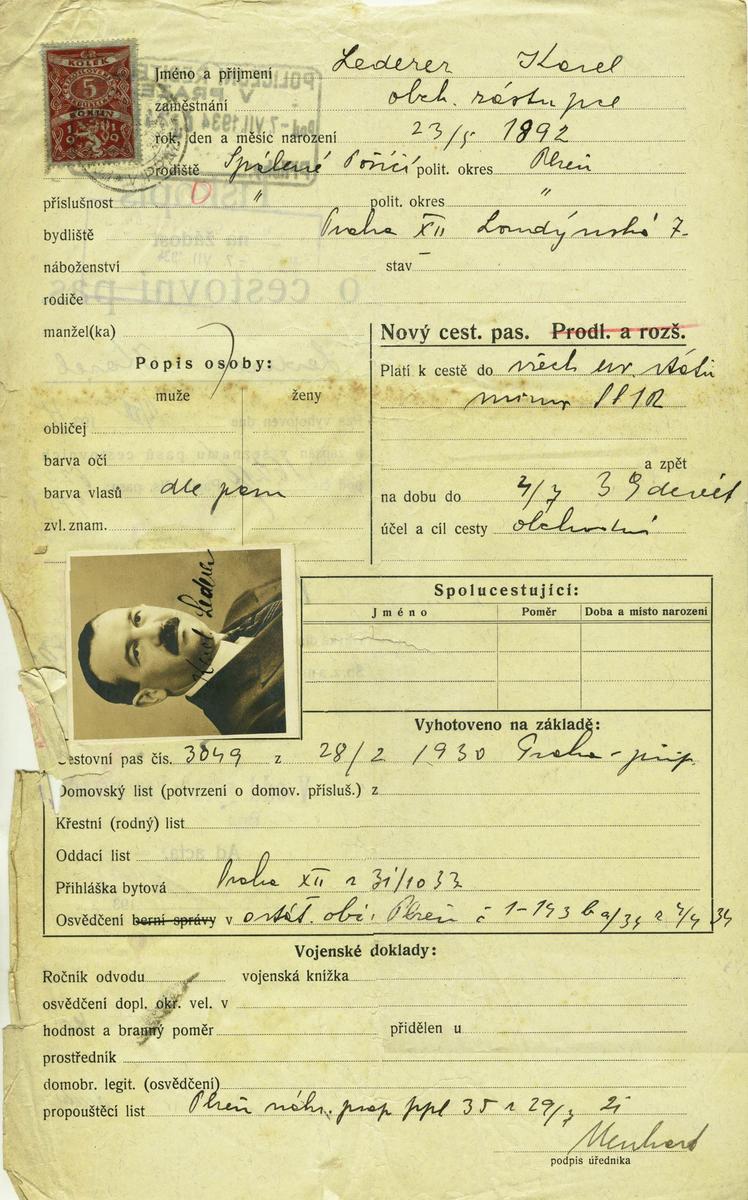 KOLEK
5
KORUN
1919
Jméno a příjmení Lederer Karel
zaměstnání obch. zástupce
rok, den a měsíc narození 23/5 1892
rodiště Spálené Poříčí polit. okres Plzeň
příslušnost " polit. okres "
bydliště Praha XII Londýnská 7.
náboženství stav
rodiče
manžel(ka)
Popis osoby:
muže ženy
obličej
barva očí
barva vlasů dle pasu
zvl. znam.
Nový cest. pas. Prodl. a rozš.
Platí k cestě do všech evr. států
mimo SSSR
a zpět
na dobu do 7/7 39 devět
účel a cíl cesty obchodní
Karel Lederer
Spolucestující:
Jméno Poměr Doba a místo narození
Vyhotoveno na základě:
Cestovní pas čís. 3049 z 28/2 1930 Praha
Domovský list (potvrzení o domov. přísluš.) z
Křestní (rodný) list
Oddací list
Přihláška bytová Praha XII z 31/10 33
Osvědčení berní správy v Plzeň č 1-193 34
Vojenské doklady:
Ročník odvodu vojenská knížka
osvědčení dopl. okr. vel. v
hodnost a branný poměr přidělen u
prostředník
domobr. legit. (osvědčení)
propouštěcí list Plzeň náhr. prap ppl 35 z 29/7 21
podpis úředníka